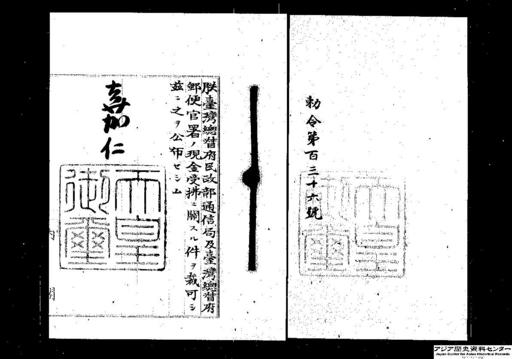 勅令第百三十六號
朕臺灣總督府民政部通信局及臺灣總督府
郵便官署ノ現金受拂ニ關スル件ヲ裁可シ
茲ニ之ヲ公布セシム
嘉仁
天皇
御璽
内閣
アジア歴史資料センター
Japan Center for Asian Historical Records